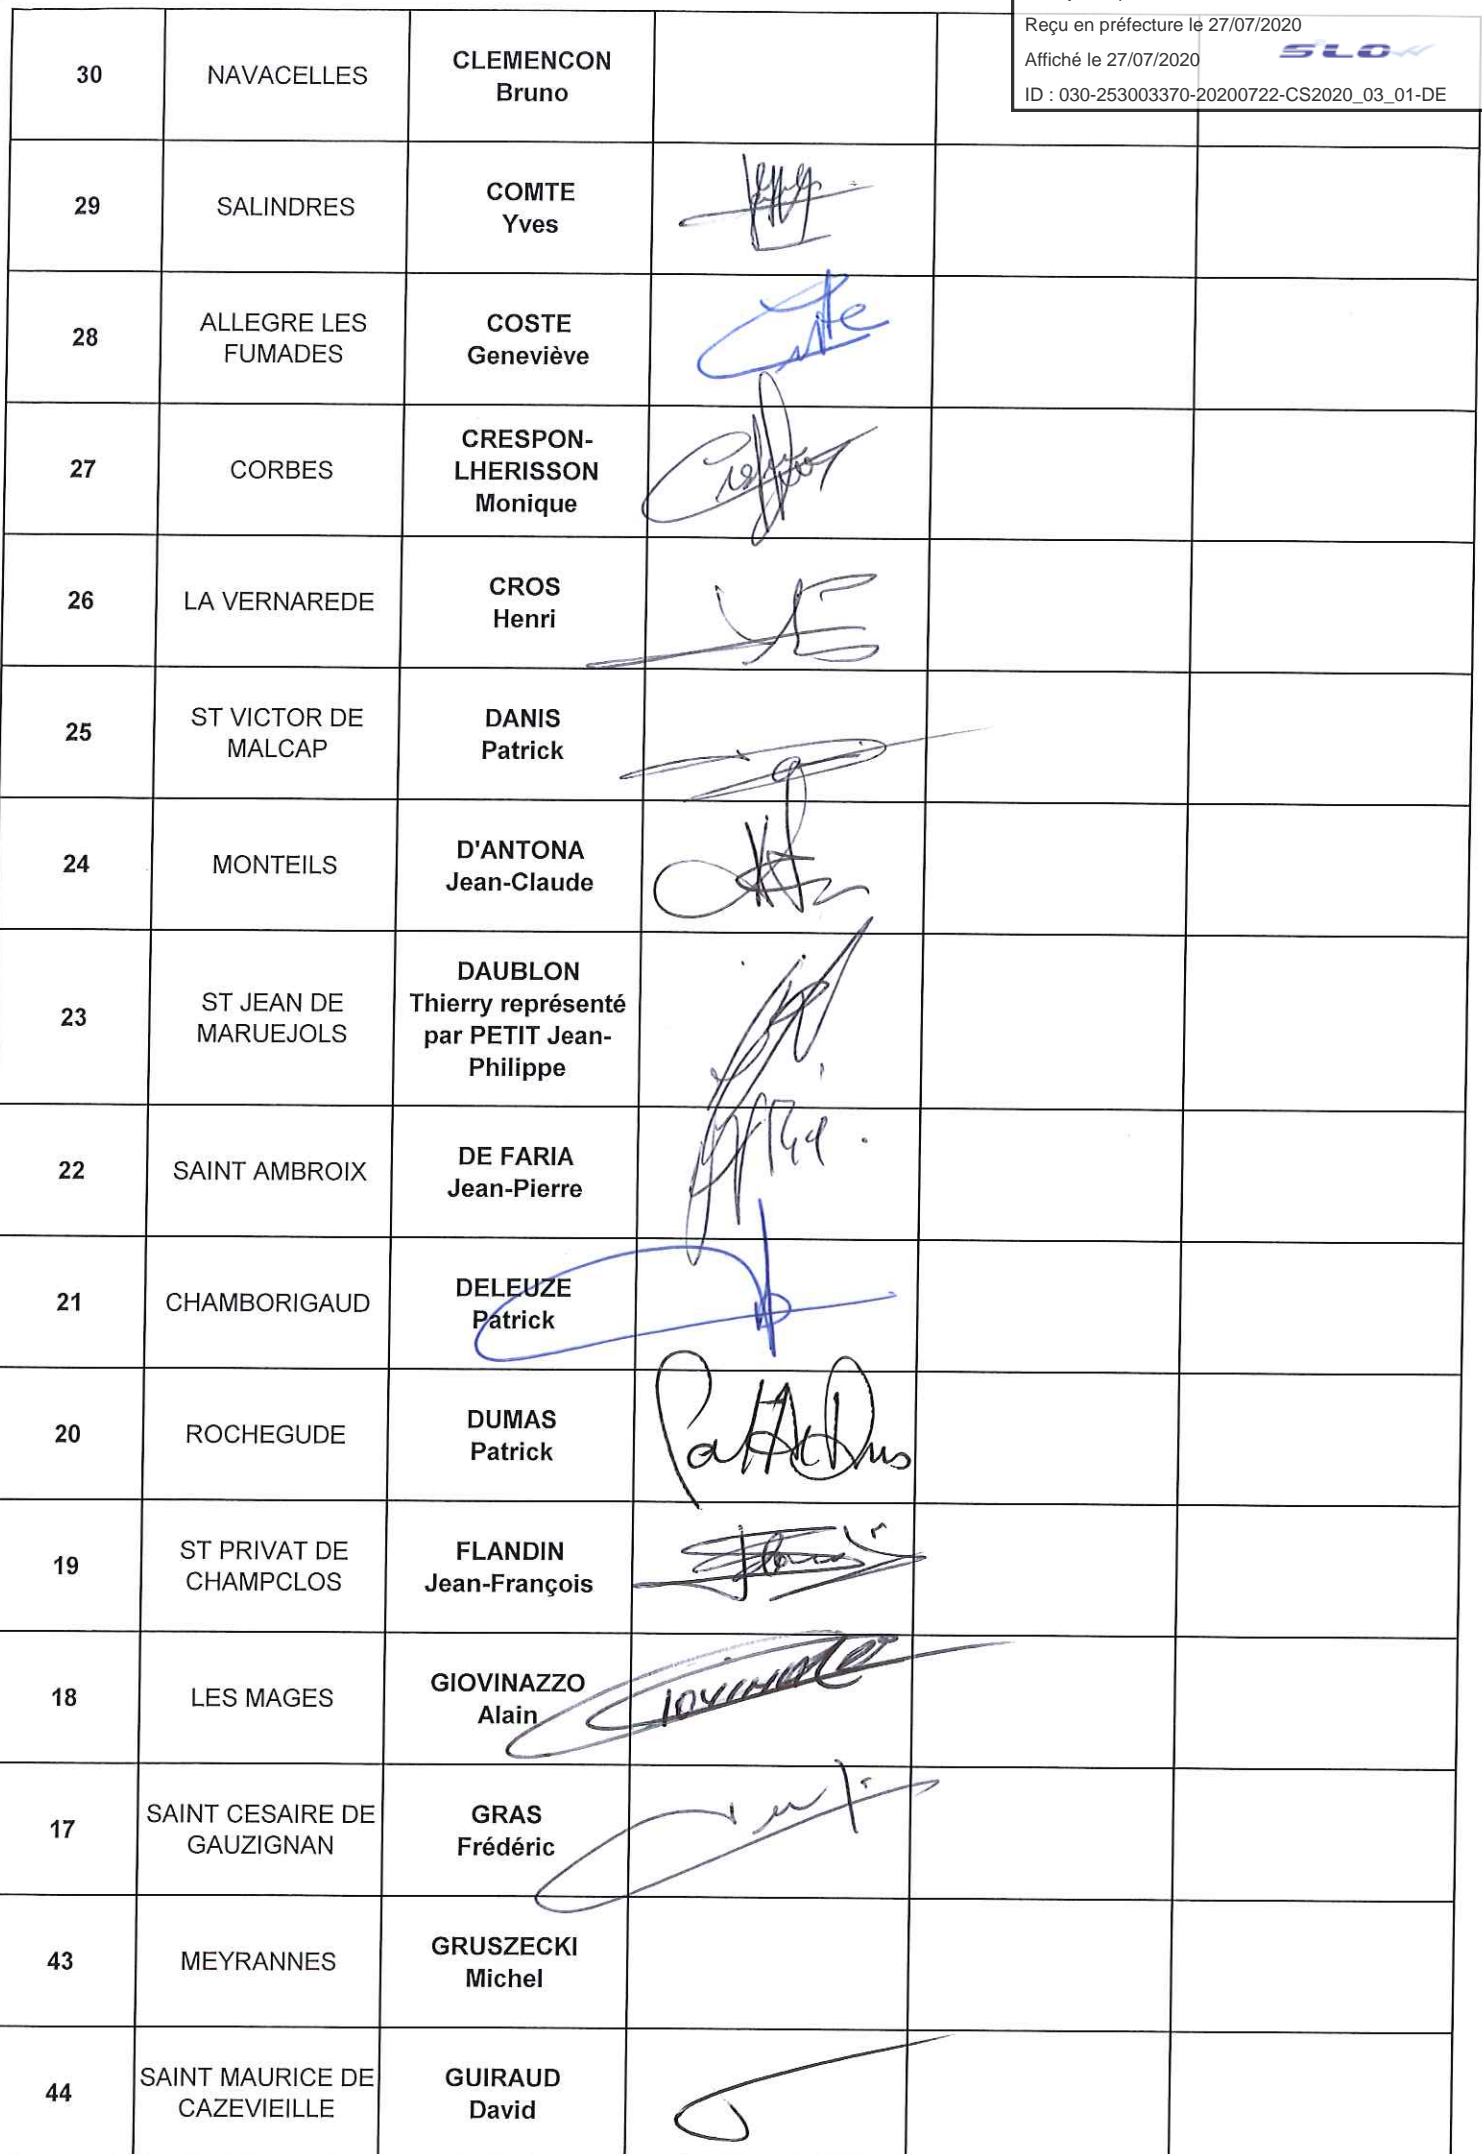 Reçu en préfecture le 27/07/2020
Affiché le 27/07/2020
SLOW
ID : 030-253003370-20200722-CS2020_03_01-DE
30 NAVACELLES CLEMENCON
Bruno
29 SALINDRES COMTE
Yves
28 ALLEGRE LES
FUMADES
COSTE
Geneviève
27 CORBES CRESPON-
LHERISSON
Monique
26 LA VERNAREDE CROS
Henri
25 ST VICTOR DE
MALCAP
DANIS
Patrick
24 MONTEILS D'ANTONA
Jean-Claude
23 ST JEAN DE
MARUEJOLS
DAUBLON
Thierry représenté
par PETIT Jean-
Philippe
22 SAINT AMBROIX DE FARIA
Jean-Pierre
21 CHAMBORIGAUD DELEUZE
Patrick
20 ROCHEGUDE DUMAS
Patrick
19 ST PRIVAT DE
CHAMPCLOS
FLANDIN
Jean-François
18 LES MAGES GIOVINAZZO
Alain
17 SAINT CESAIRE DE
GAUZIGNAN
GRAS
Frédéric
43 MEYRANNES GRUSZECKI
Michel
44 SAINT MAURICE DE
CAZEVIEILLE
GUIRAUD
David